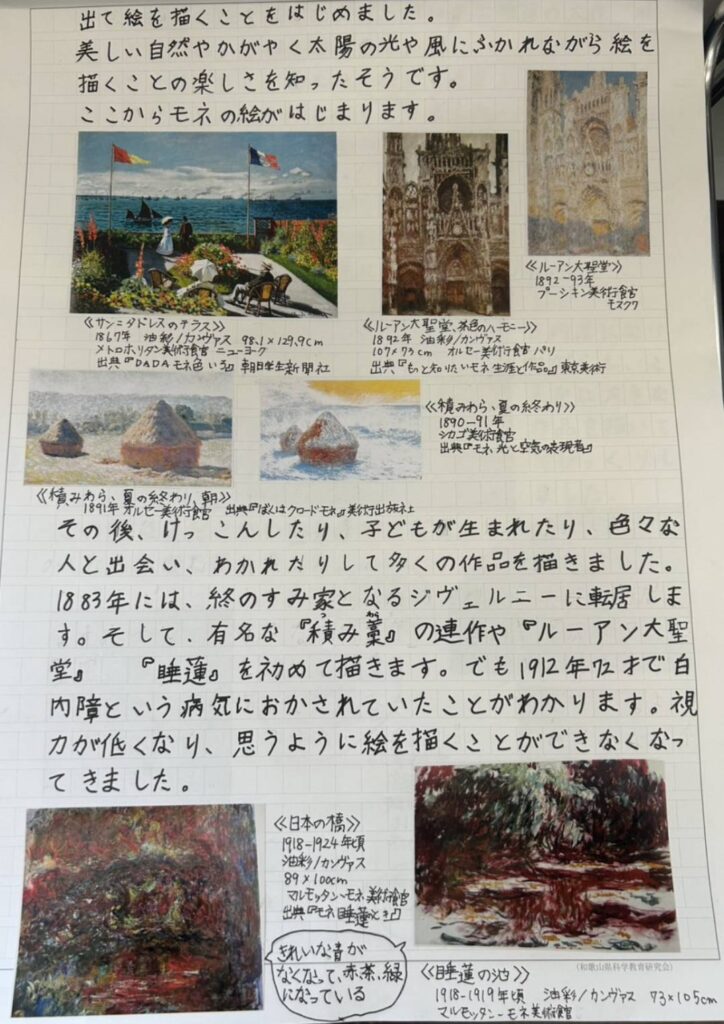 出て絵を描くことをはじめました。
美しい自然やかがやく太陽の光や風にふかれながら絵を
描くことの楽しさを知ったそうです。
ここからモネの絵がはじまります。
《サンタドレスのテラス》
1867年 油彩/カンヴァス 98.1×129.9cm
メトロポリタン美術館 ニューヨーク
出典『DADAモネ色いろ』朝日学生新聞社
《ルーアン大聖堂、茶色のハーモニー》
1892年 油彩/カンヴァス
107×73cm オルセー美術館 パリ
出典『もっと知りたいモネ 生涯と作品』東京美術
《ルーアン大聖堂》
1892-93年
プーシキン美術館
モスクワ
《積みわら、夏の終わり》
1890-91年
シカゴ美術館
出典『モネ、光と空気の表現者』
《積みわら、夏の終わり、朝》
1891年 オルセー美術館 出典『ぼくはクロード・モネ』美術出版社
その後、けっこんしたり、子どもが生まれたり、色々な
人と出会い、わかれたりして多くの作品を描きました。
1883年には、終のすみ家となるジヴェルニーに転居しま
す。そして、有名な『積み藁』の連作や『ルーアン大聖
堂』 『睡蓮』を初めて描きます。でも1912年72才で白
内障という病気におかされていたことがわかります。視
力が低くなり、思うように絵を描くことができなくなっ
てきました。
《日本の橋》
1918-1924年頃
油彩/カンヴァス
89×100cm
マルモッタン-モネ美術館
出典『モネ睡蓮のとき』
きれいな青が
なくなって、赤、茶、緑
になっている
(和歌山県科学教育研究会)
《睡蓮の池》
1918-1919年頃 油彩/カンヴァス 73×105cm
マルモッタン-モネ美術館